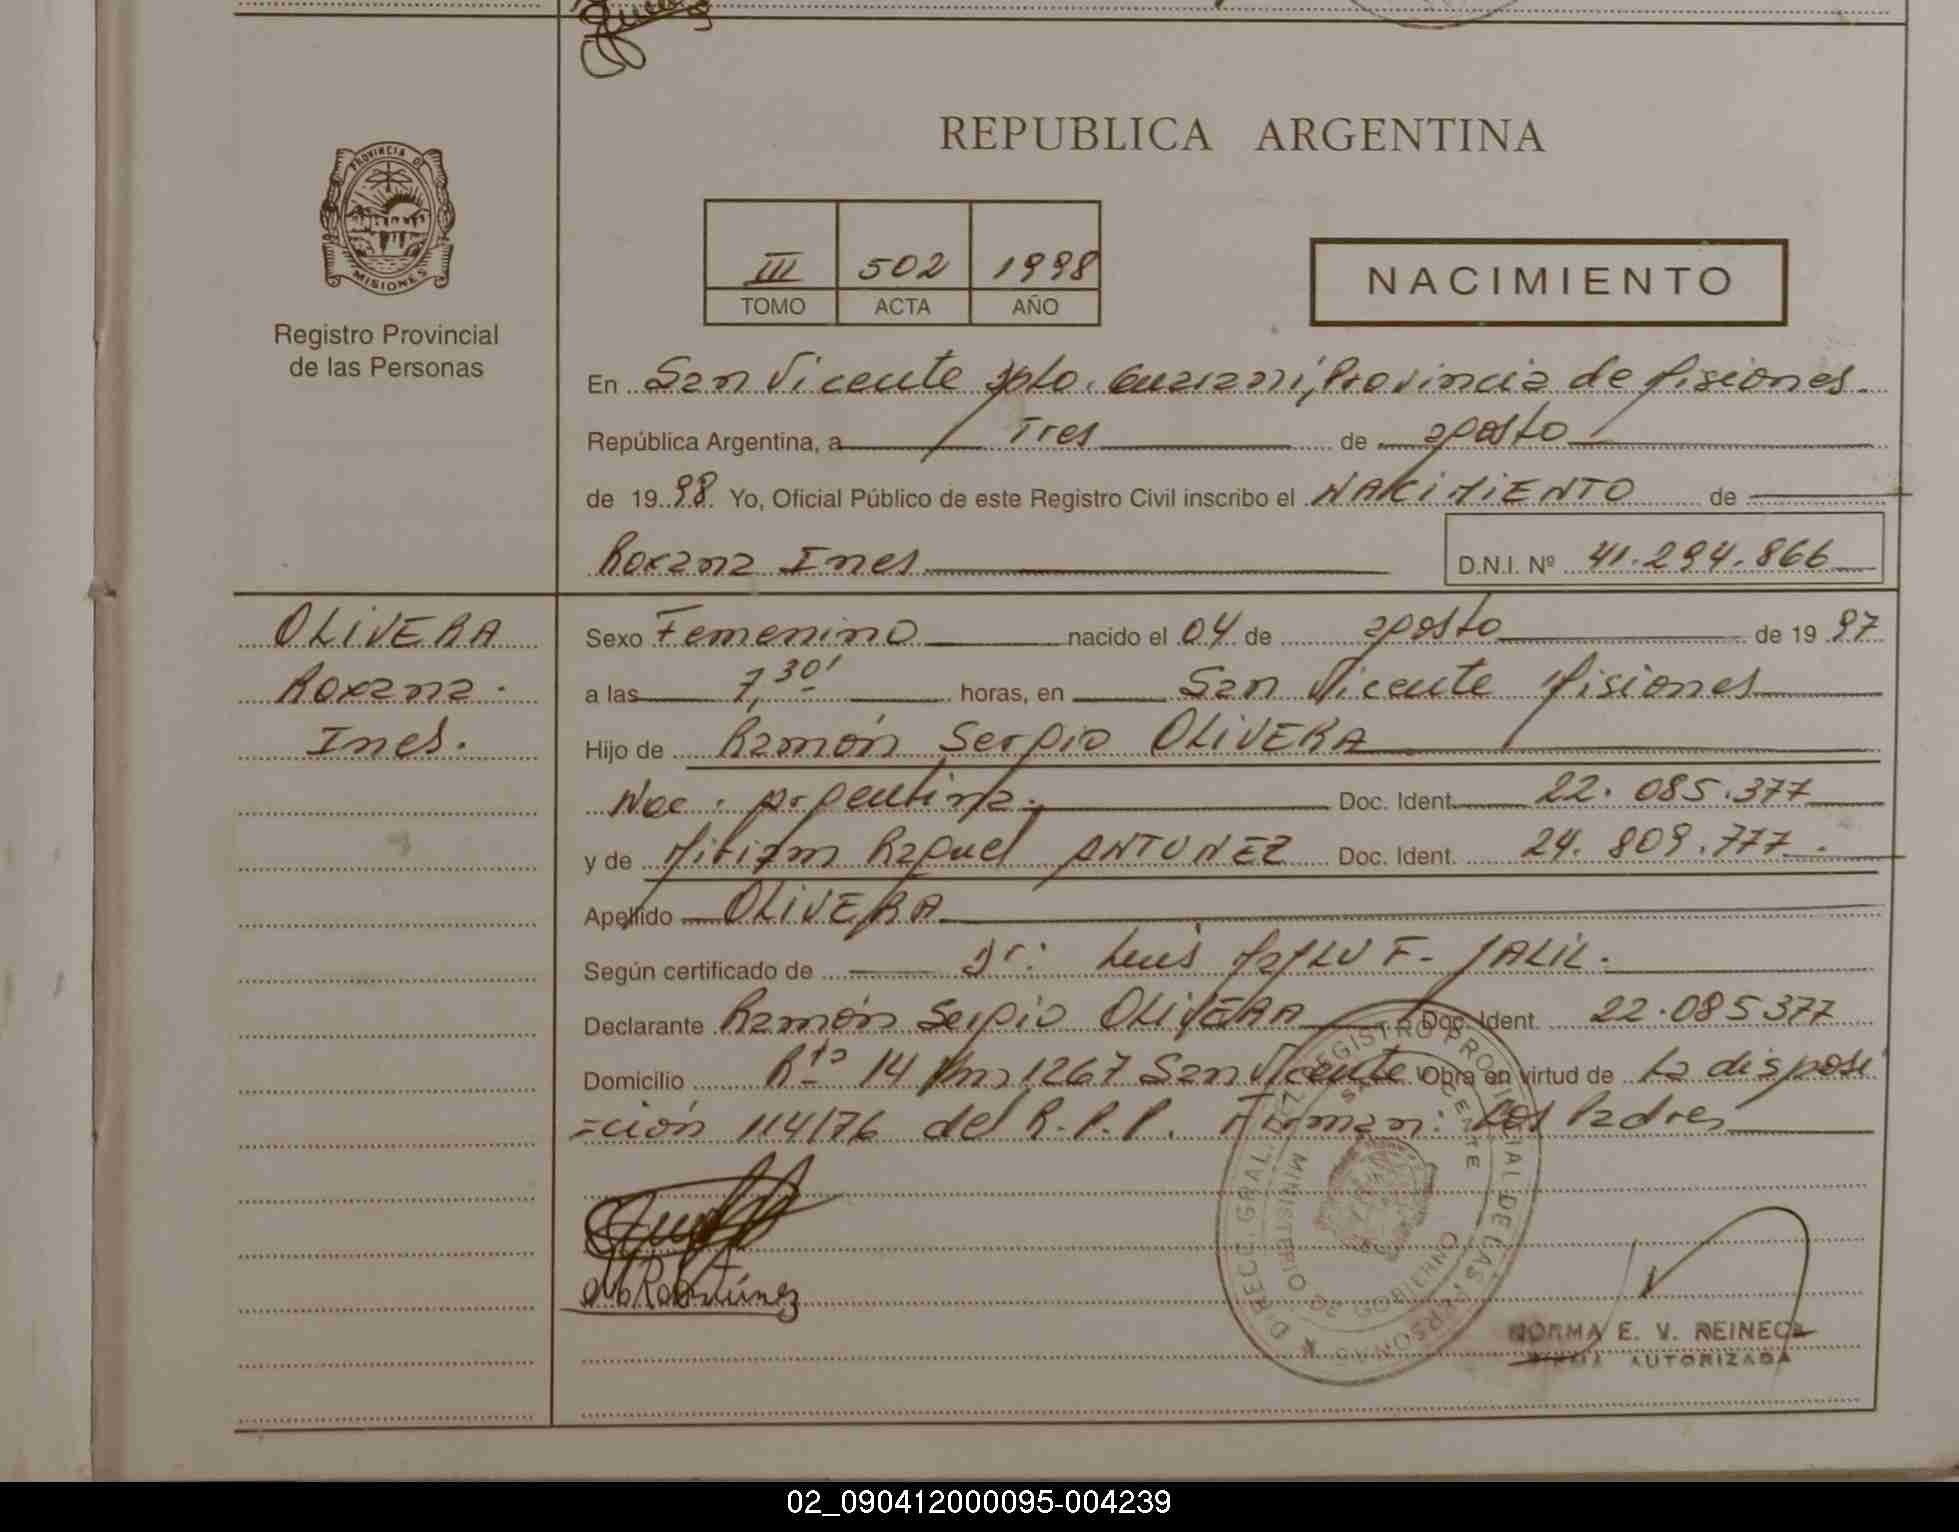 REPUBLICA ARGENTINA
PROVINCIA DE
MISIONES
Registro Provincial
de las Personas
III 502 1998
TOMO ACTA AÑO
NACIMIENTO
En San Vicente Dpto. Guarani, Provincia de Misiones.
República Argentina, a Tres de agosto
de 1998. Yo, Oficial Público de este Registro Civil inscribo el NACIMIENTO de
Roxana Ines D.N.I. Nº 41.294.866
OLIVERA
Roxana.
Ines.
Sexo Femenino nacido el 04 de agosto de 1997
a las 7,30' horas, en San Vicente Misiones
Hijo de Ramón Sergio OLIVERA
Nac. Argentina. Doc. Ident. 22.085.377
y de Miriam Raquel ANTUNEZ Doc. Ident. 24.809.777.
Apellido OLIVERA
Según certificado de Dr: Luis F. JALIL.
Declarante Ramón Sergio OLIVERA Doc. Ident. 22.085377
Domicilio Rta 14 Km 1267 San Vicente Obra en virtud de La disposi
=ción 114/76 del R.P.P. Firman: Los Padres
DIRECC. GRAL. DEL REGISTRO PROVINCIAL DE LAS PERSONAS
SAN VICENTE
MINISTERIO DE GOBIERNO
NORMA E. V. REINECK
FIRMA AUTORIZADA
02_090412000095-004239